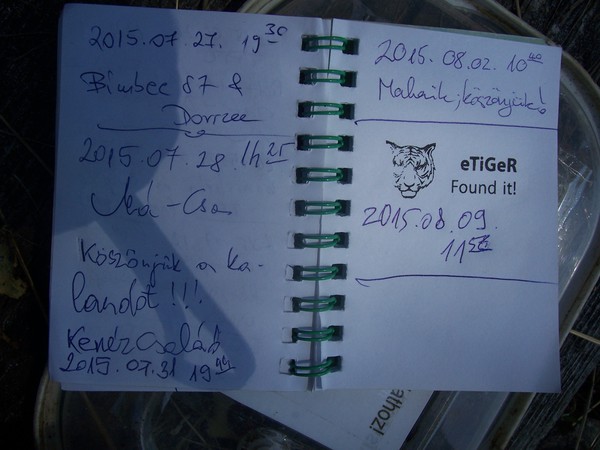 2015.07.27. 19 30
Bimbec 87 &
Dorrzee
2015.07.28. 1h 25
Má-Csa
Köszönjük a ka-
landót!!!
Kenéz Család
2015.07.31 19
2015.08.02. 10
köszönjük!
eTiGeR
Found it!
2015.08.09.
11 56
athoz!